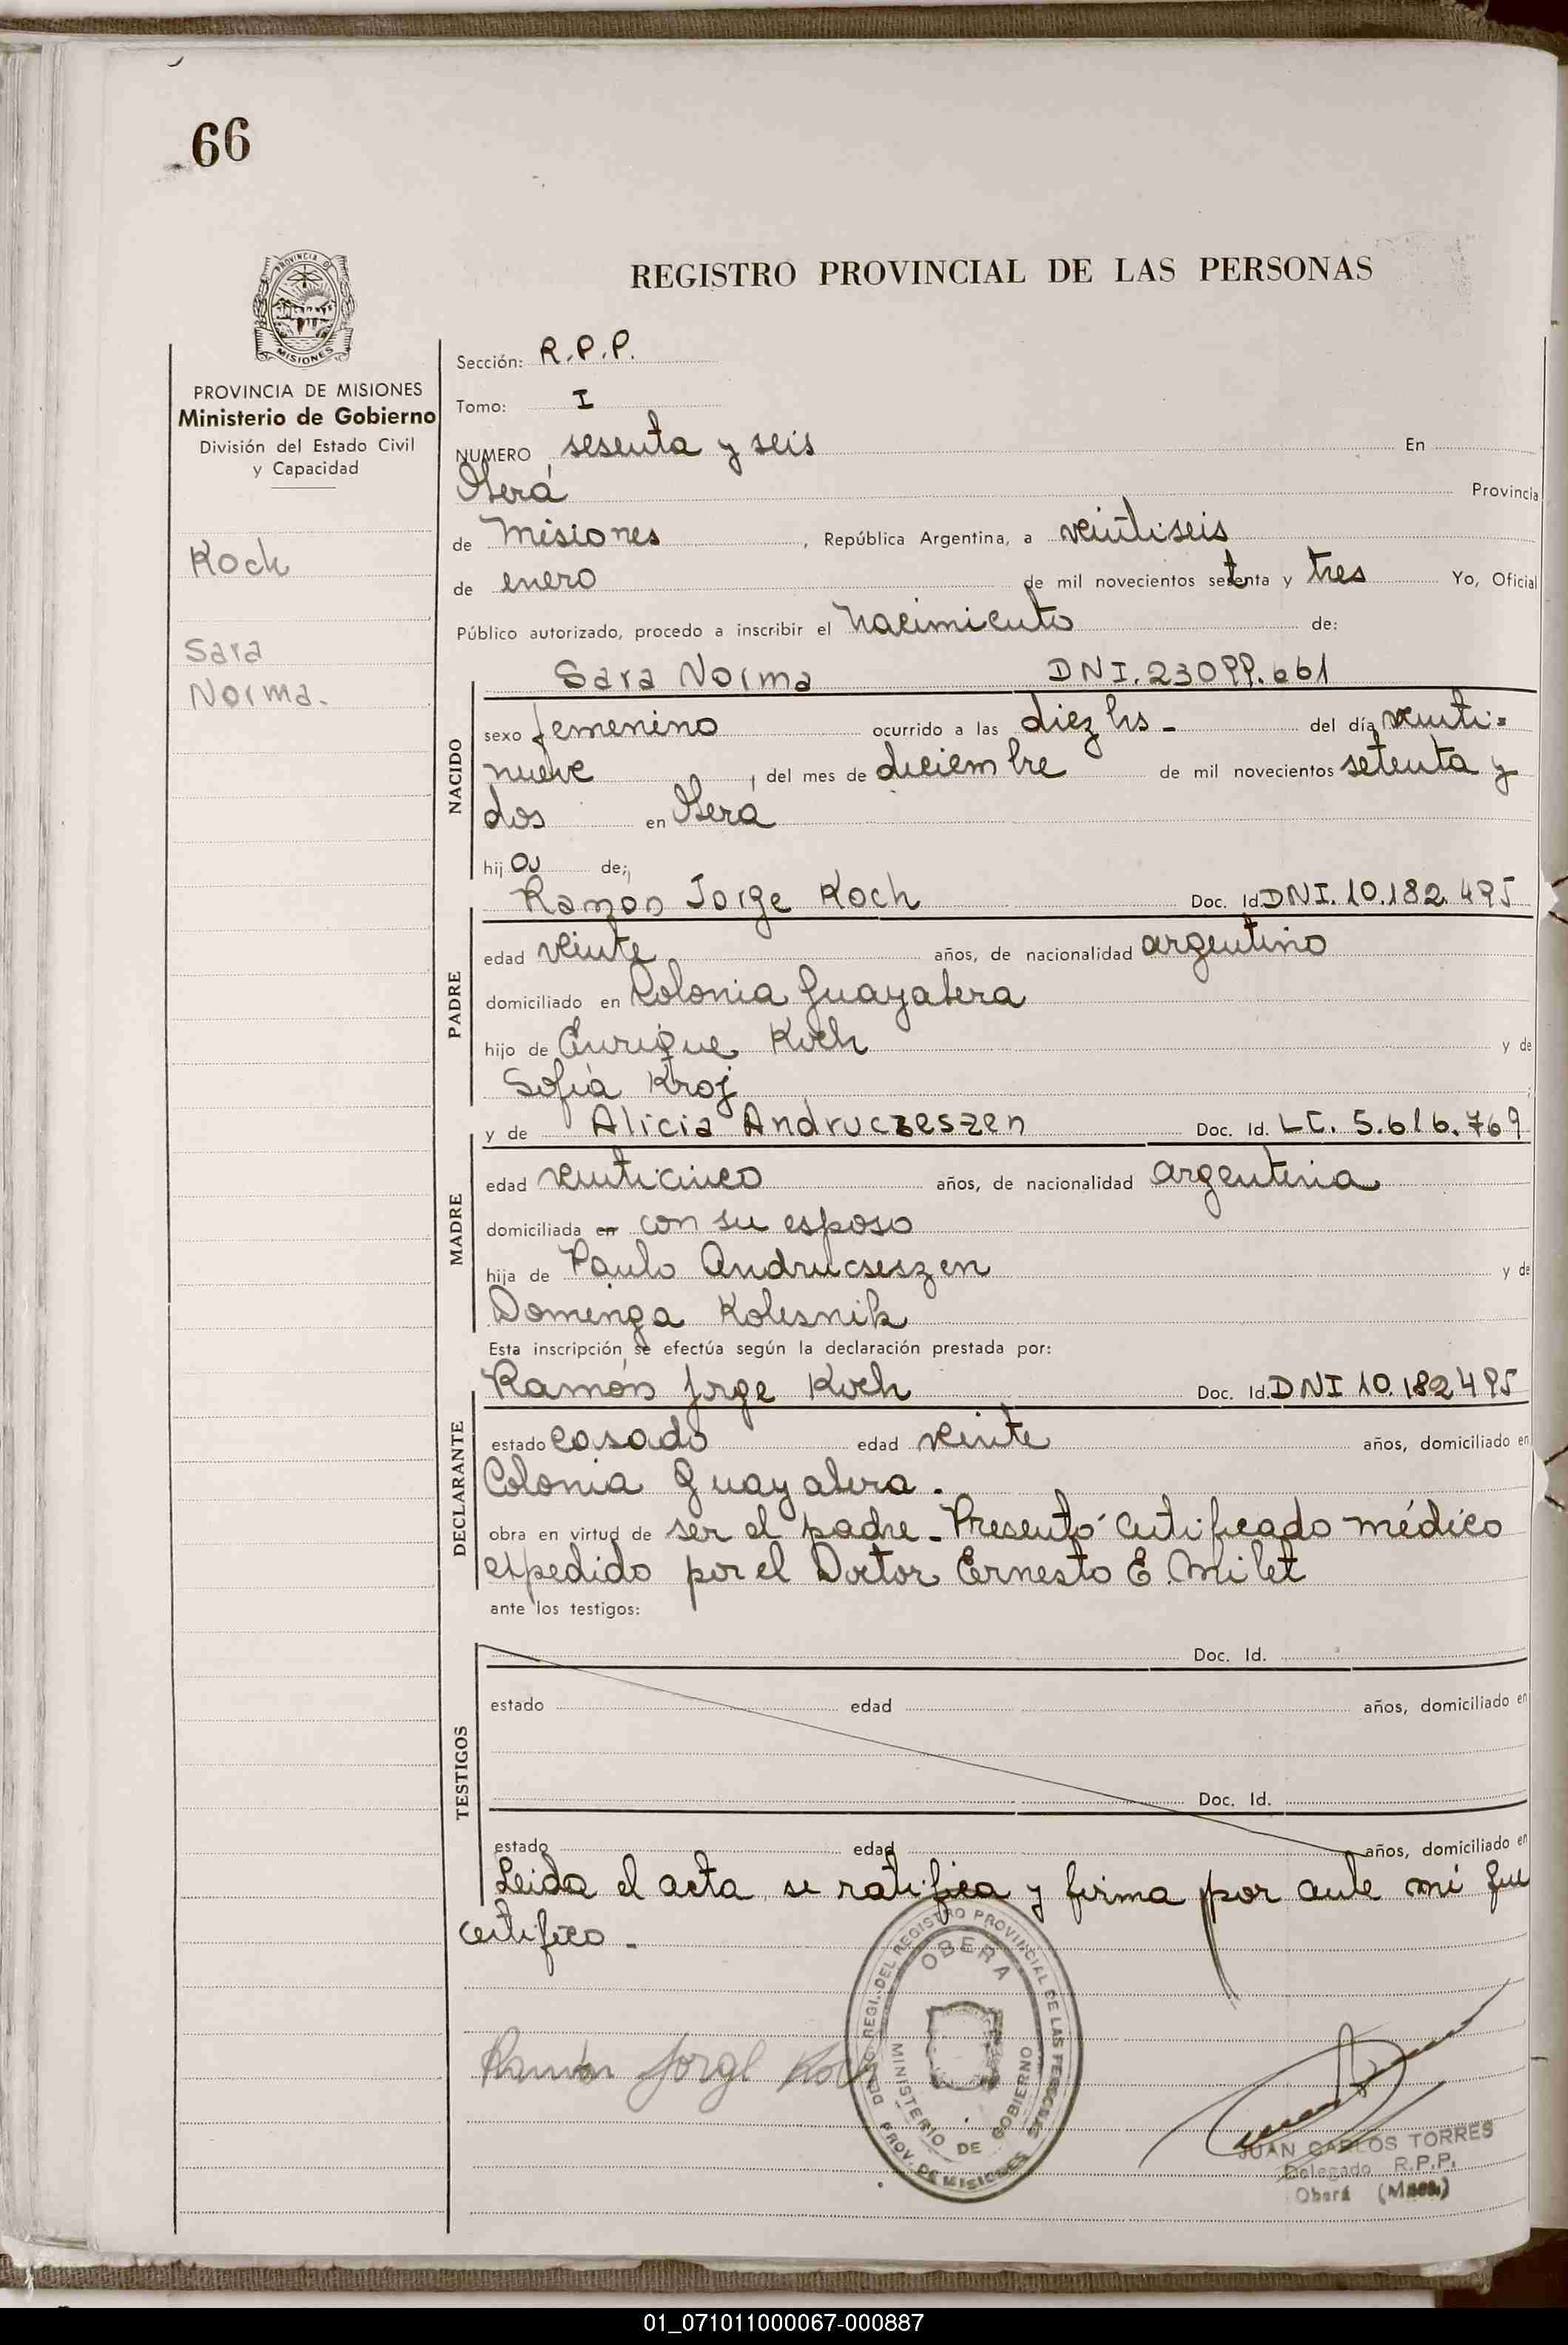 66
PROVINCIA DE
MISIONES
REGISTRO PROVINCIAL DE LAS PERSONAS
PROVINCIA DE MISIONES
Ministerio de Gobierno
División del Estado Civil
y Capacidad
Koch
Sara
Norma.
Sección: R.P.P.
Tomo: I
NUMERO sesenta y seis En
Oberá Provincia
de Misiones, República Argentina, a veintiseis
de enero de mil novecientos setenta y tres Yo, Oficial
Público autorizado, procedo a inscribir el nacimiento de:
Sara Norma DNI. 23099.661
NACIDO
sexo femenino ocurrido a las diez hs - del día veinti=
nueve, del mes de diciembre de mil novecientos setenta y
dos en Oberá
hija de;
Ramón Jorge Koch Doc. Id DNI. 10.182.495
PADRE
edad veinte años, de nacionalidad argentino
domiciliado en Colonia Guayabera
hijo de Enrique Koch y de
Sofía Kroj
y de Alicia Andruczeszen Doc. Id. LC. 5.616.769
MADRE
edad veinticinco años, de nacionalidad argentina
domiciliada en con su esposo
hija de Paulo Andrucseszen y de
Dominga Kolesnik
Esta inscripción se efectúa según la declaración prestada por:
Ramón Jorge Koch Doc. Id. DNI 10.182495
DECLARANTE
estado casado edad veinte años, domiciliado en
Colonia Guayabera.
obra en virtud de ser el padre - Presentó certificado médico
expedido por el Doctor Ernesto E. Milet
ante los testigos:
TESTIGOS
Doc. Id.
estado edad años, domiciliado en
Doc. Id.
estado edad años, domiciliado en
Leida el acta se ratifica y firma por ante mí que
certifico -
Ramón Jorge Koch
DELEG. REGI. DEL REGISTRO PROVINCIAL DE LAS PERSONAS
OBERA
MINISTERIO DE GOBIERNO
PROV. DE MISIONES
JUAN CARLOS TORRES
Delegado R.P.P.
Oberá (Mnes.)
01_071011000067-000887